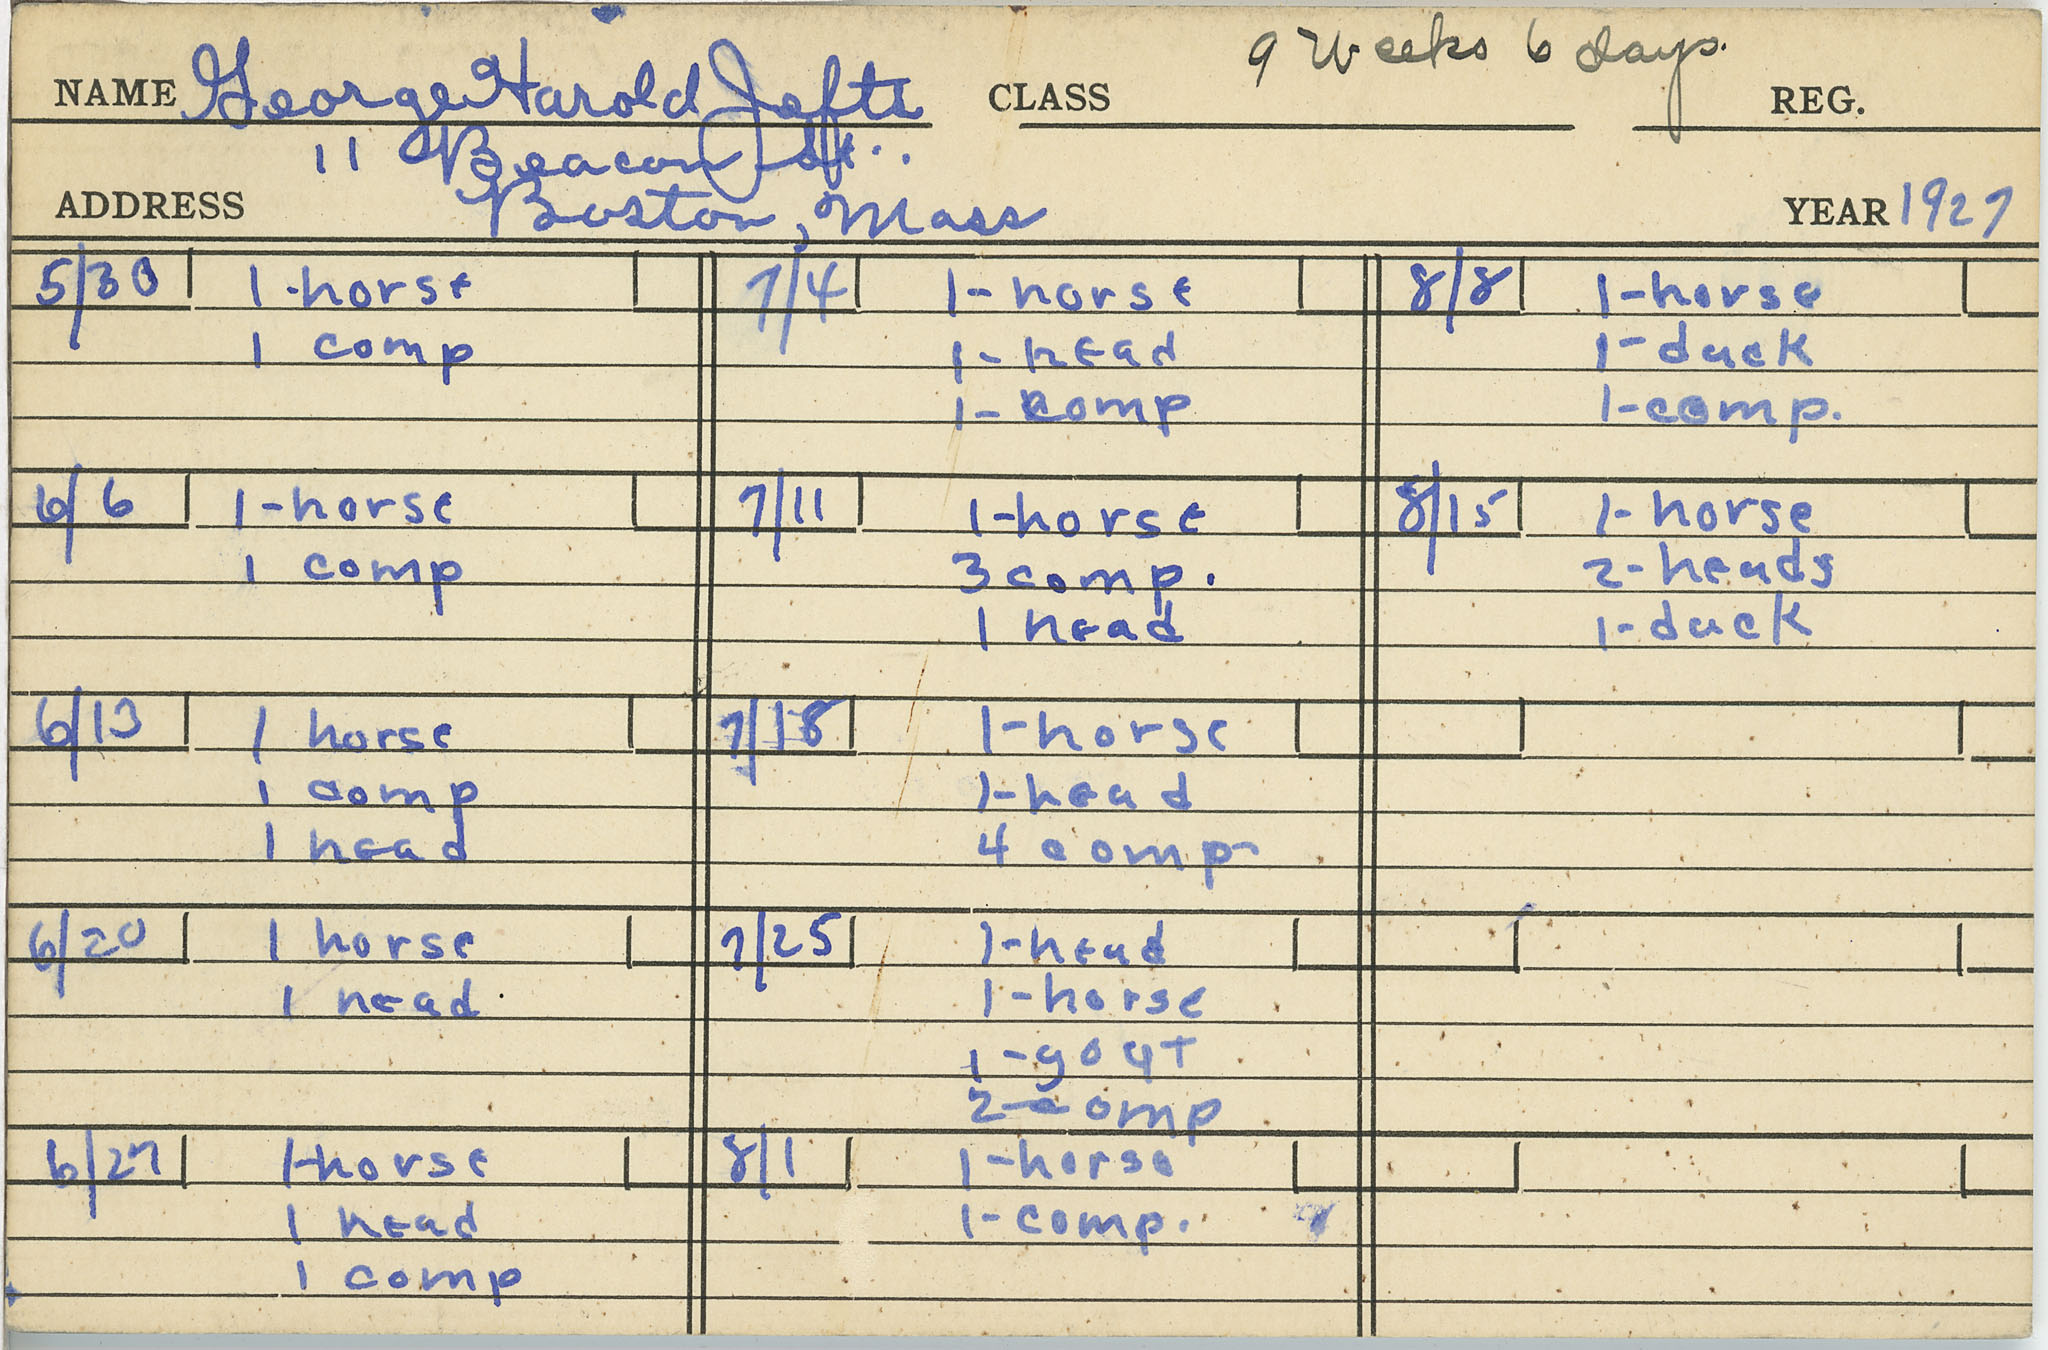 9 Weeks 6 days.
NAME George Harold Jefts CLASS REG.
11 Beacon St.
ADDRESS Boston, Mass YEAR 1927
5/30 1-horse
1 comp
6/6 1-horse
1 comp
6/13 1 horse
1 comp
1 head
6/20 1 horse
1 head
6/27 1-horse
1 head
1 comp
7/4 1-horse
1-head
1-comp
7/11 1-horse
3 comp.
1 head
7/18 1-horse
1-head
4 comp
7/25 1-head
1-horse
1-goat
2-comp
8/1 1-horse
1-comp.
8/8 1-horse
1-duck
1-comp.
8/15 1-horse
2-heads
1-duck